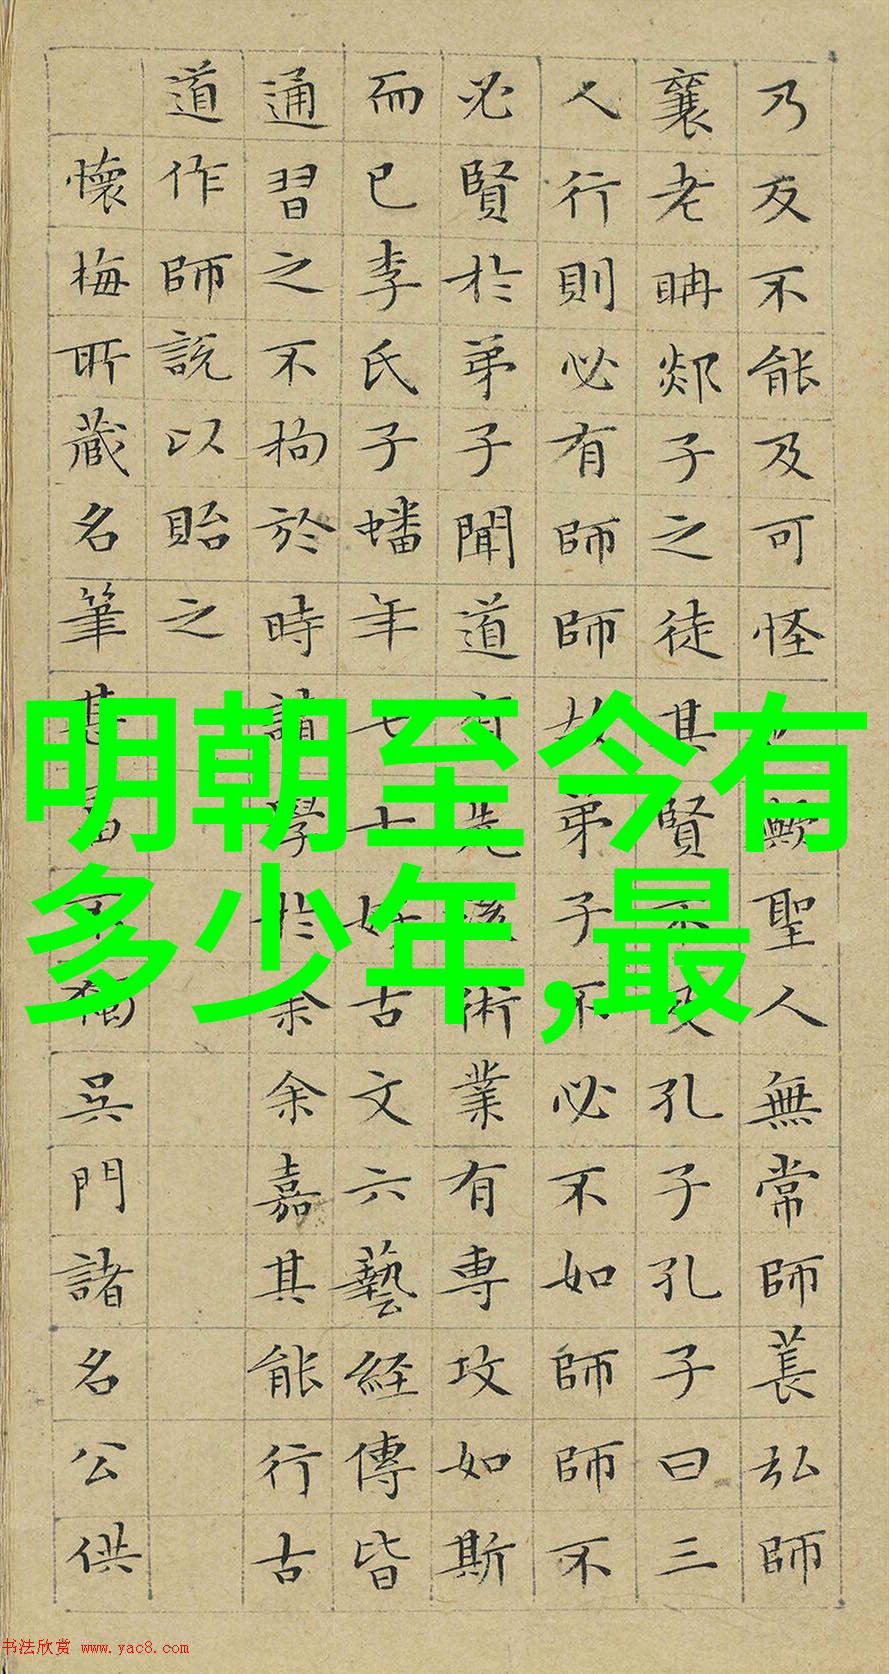 明朝至今有
多少年,最
乃反不能及可怪歟聖人無常師萇弘師
襄老聃郯子之徒其賢不及孔子孔子曰三
人行則必有師師故弟子不必不如師師不
必賢於弟子聞道有先後術業有專攻如斯
而已李氏子蟠年七十好古文六藝經傳皆
通習之不拘於時請學於余余嘉其能行古
道作師說以貽之
懷梅所藏名筆甚富不獨吳門諸名公供
书法欣赏 www.yac8.com